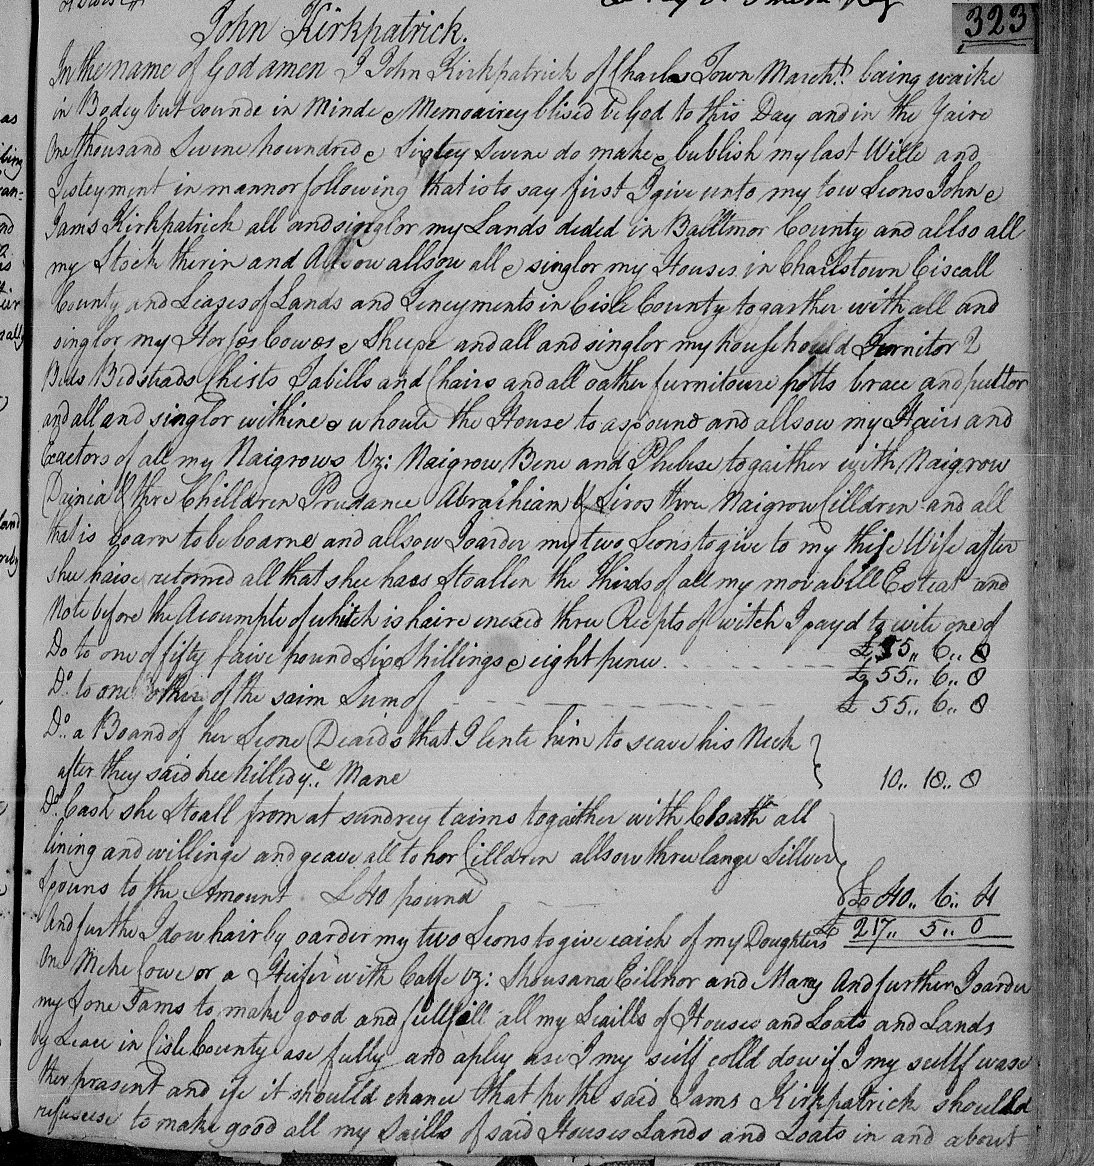 323
John Kirkpatrick.
In the name of God amen I John Kirkpatrick of Charls Town March.t being waike
in Bodey but sounde in Minde & Memoairey blised be God to this Day and in the Yaire
One thousand Sevine houndred & Sixtey Sevine do make & bublish my last Wille and
Testeyment in mannor following that is to say first I give unto my tow Sons John &
Jams Kirkpatrick all and singlor my Lands deded in Balltmor County and allso all
my Stock therin and allsow all & singlor my Houses in Charlstown Ciscall
County and Leases of Lands and Teneyments in Cisle County togarther with all and
singlor my Horses Cowes & Sheepe and all and singlor my househould Furnitor 2
Beds Bedstads Chists Tabills and Chairs and all oather furnitoure potts brace and putter
and all and singlor withine & whoute the House to aspound and allsow my Hairs and
Exactors of all my Naigrows Vz: Naigrow Bene and Phebese togaither with Naigrow
Dainia & thre Chilldren Prudance Abraihiam & Siros thre Naigrow Cilldren and all
that is boarn to be boarne and allsow I oarder my two Sons to give to my thife Wife after
shee haise retorned all that shee hass Stoallen the thirds of all my movabill Esteat and
Note before the Acoumpte of which is haire enexed thre Recpts of witch I payd to wite one of
£55,, 6,, 8
Do to one of fifty faive pound Six Shillings & eight pence.
£55,, 6,, 8
Do. to one other of the saim Sum of
£55,, 6,, 8
Do. a Boand of her Sone Deaids that I lente him to seave his Neck
after they said hee killed ye Mane
10,, 18,, 8
Do Cash she Stoall from at sundrey taims togaither with Cloath all
lining and willinge and geave all to hor Cilldren allsow three large Sillver
spouns to the Amount £40 pound
£40,, 6,, 4
£217,, 5,, 0
And further I dow hairby oarder my two Sons to give eaich of my Doughters
One Melke Cowe or a Heifer with Calfe vz: Shousana Eillnor and Mary And further I oarder
my Sone Jams to make good and fullfill all my Saills of Houses and Loats and Lands
by Lease in Cisle County ase fully and apley ase I my seilf colld dow if I my sellf wase
ther prasent and ife it shoulld chance that he the said Jams Kirkpatrick shoulld
refuseese to make good all my Saills of said Houses Lands and Loats in and about